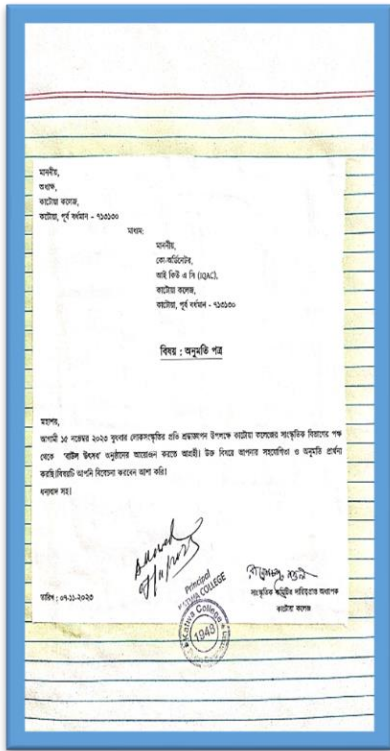 মাননীয়,
অধ্যক্ষ,
কাটোয়া কলেজ,
কাটোয়া, পূর্ব বর্ধমান - ৭১৩১৩০
মাধ্যম:
মাননীয়,
কো-অর্ডিনেটর,
আই কিউ এ সি (IQAC),
কাটোয়া কলেজ,
কাটোয়া, পূর্ব বর্ধমান - ৭১৩১৩০
বিষয় : অনুমতি পত্র
মহাশয়,
আগামী ১৫ নভেম্বর ২০২৩ বুধবার লোকসংস্কৃতির প্রতি শ্রদ্ধাজ্ঞাপন উপলক্ষে কাটোয়া কলেজের সাংস্কৃতিক বিভাগের পক্ষ
থেকে 'বাউল উৎসব' অনুষ্ঠানের আয়োজন করতে আগ্রহী। উক্ত বিষয়ে আপনার সহযোগিতা ও অনুমতি প্রার্থনা
করছি।বিষয়টি আপনি বিবেচনা করবেন আশা করি।
ধন্যবাদ সহ।
Allowed
Principal
KATWA COLLEGE
Katwa College
1948
তারিখ : ০৭-১১-২০২৩
সাংস্কৃতিক কমিটির দায়িত্বপ্রাপ্ত অধ্যাপক
কাটোয়া কলেজ